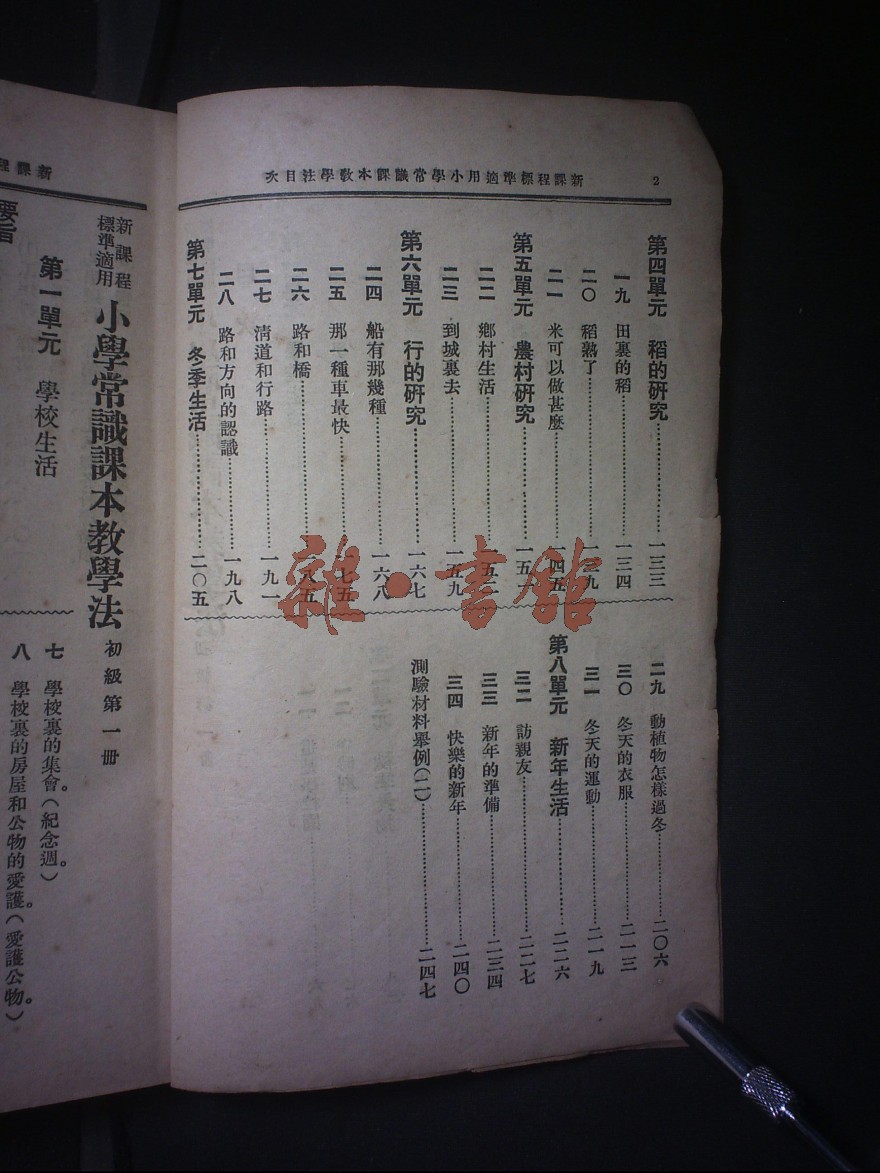 新課程標準適用小學常識課本教學法目次 2
第四單元 稻的研究 一三三
一九 田裏的稻 一三四
二〇 稻熟了 一三九
二一 米可以做甚麼 一四五
第五單元 農村研究 一五一
二二 鄉村生活 一五二
二三 到城裏去 一五九
第六單元 行的研究 一六七
二四 船有那幾種 一六八
二五 那一種車最快 一七五
二六 路和橋 一八五
二七 清道和行路 一九一
二八 路和方向的認識 一九八
第七單元 冬季生活 二〇五
二九 動植物怎樣過冬 二〇六
三〇 冬天的衣服 二一三
三一 冬天的運動 二一九
第八單元 新年生活 二二六
三二 訪親友 二二七
三三 新年的準備 二三四
三四 快樂的新年 二四〇
測驗材料舉例(二) 二四七
雜·書館
新課程
新課程標準適用 小學常識課本教學法 初級第一冊
第一單元 學校生活
要旨
七 學校裏的集會。(紀念週。)
八 學校裏的房屋和公物的愛護。(愛護公物。)